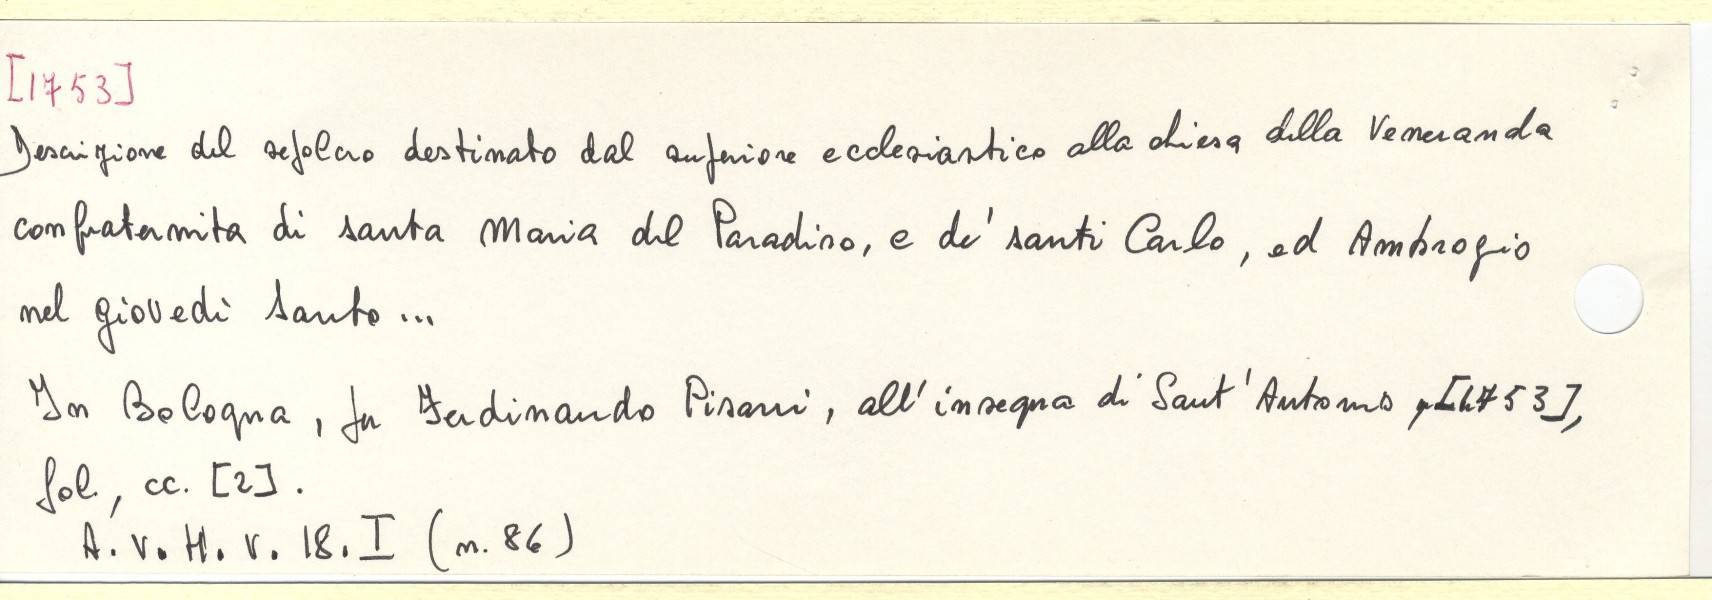 [1753]
Descrizione del sepolcro destinato dal superiore ecclesiastico alla chiesa della Veneranda
confraternita di santa Maria del Paradiso, e de' santi Carlo, ed Ambrogio
nel giovedì santo...
In Bologna, per Ferdinando Pisarri, all'insegna di Sant'Antonio, [1753],
fol., cc. [2].
A.V.H.V.18.I (n. 86)